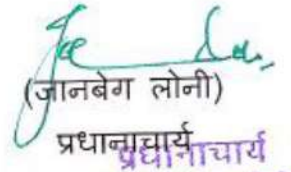 (जानबेग लोनी)
प्रधानाचार्य
प्रधानाचार्य